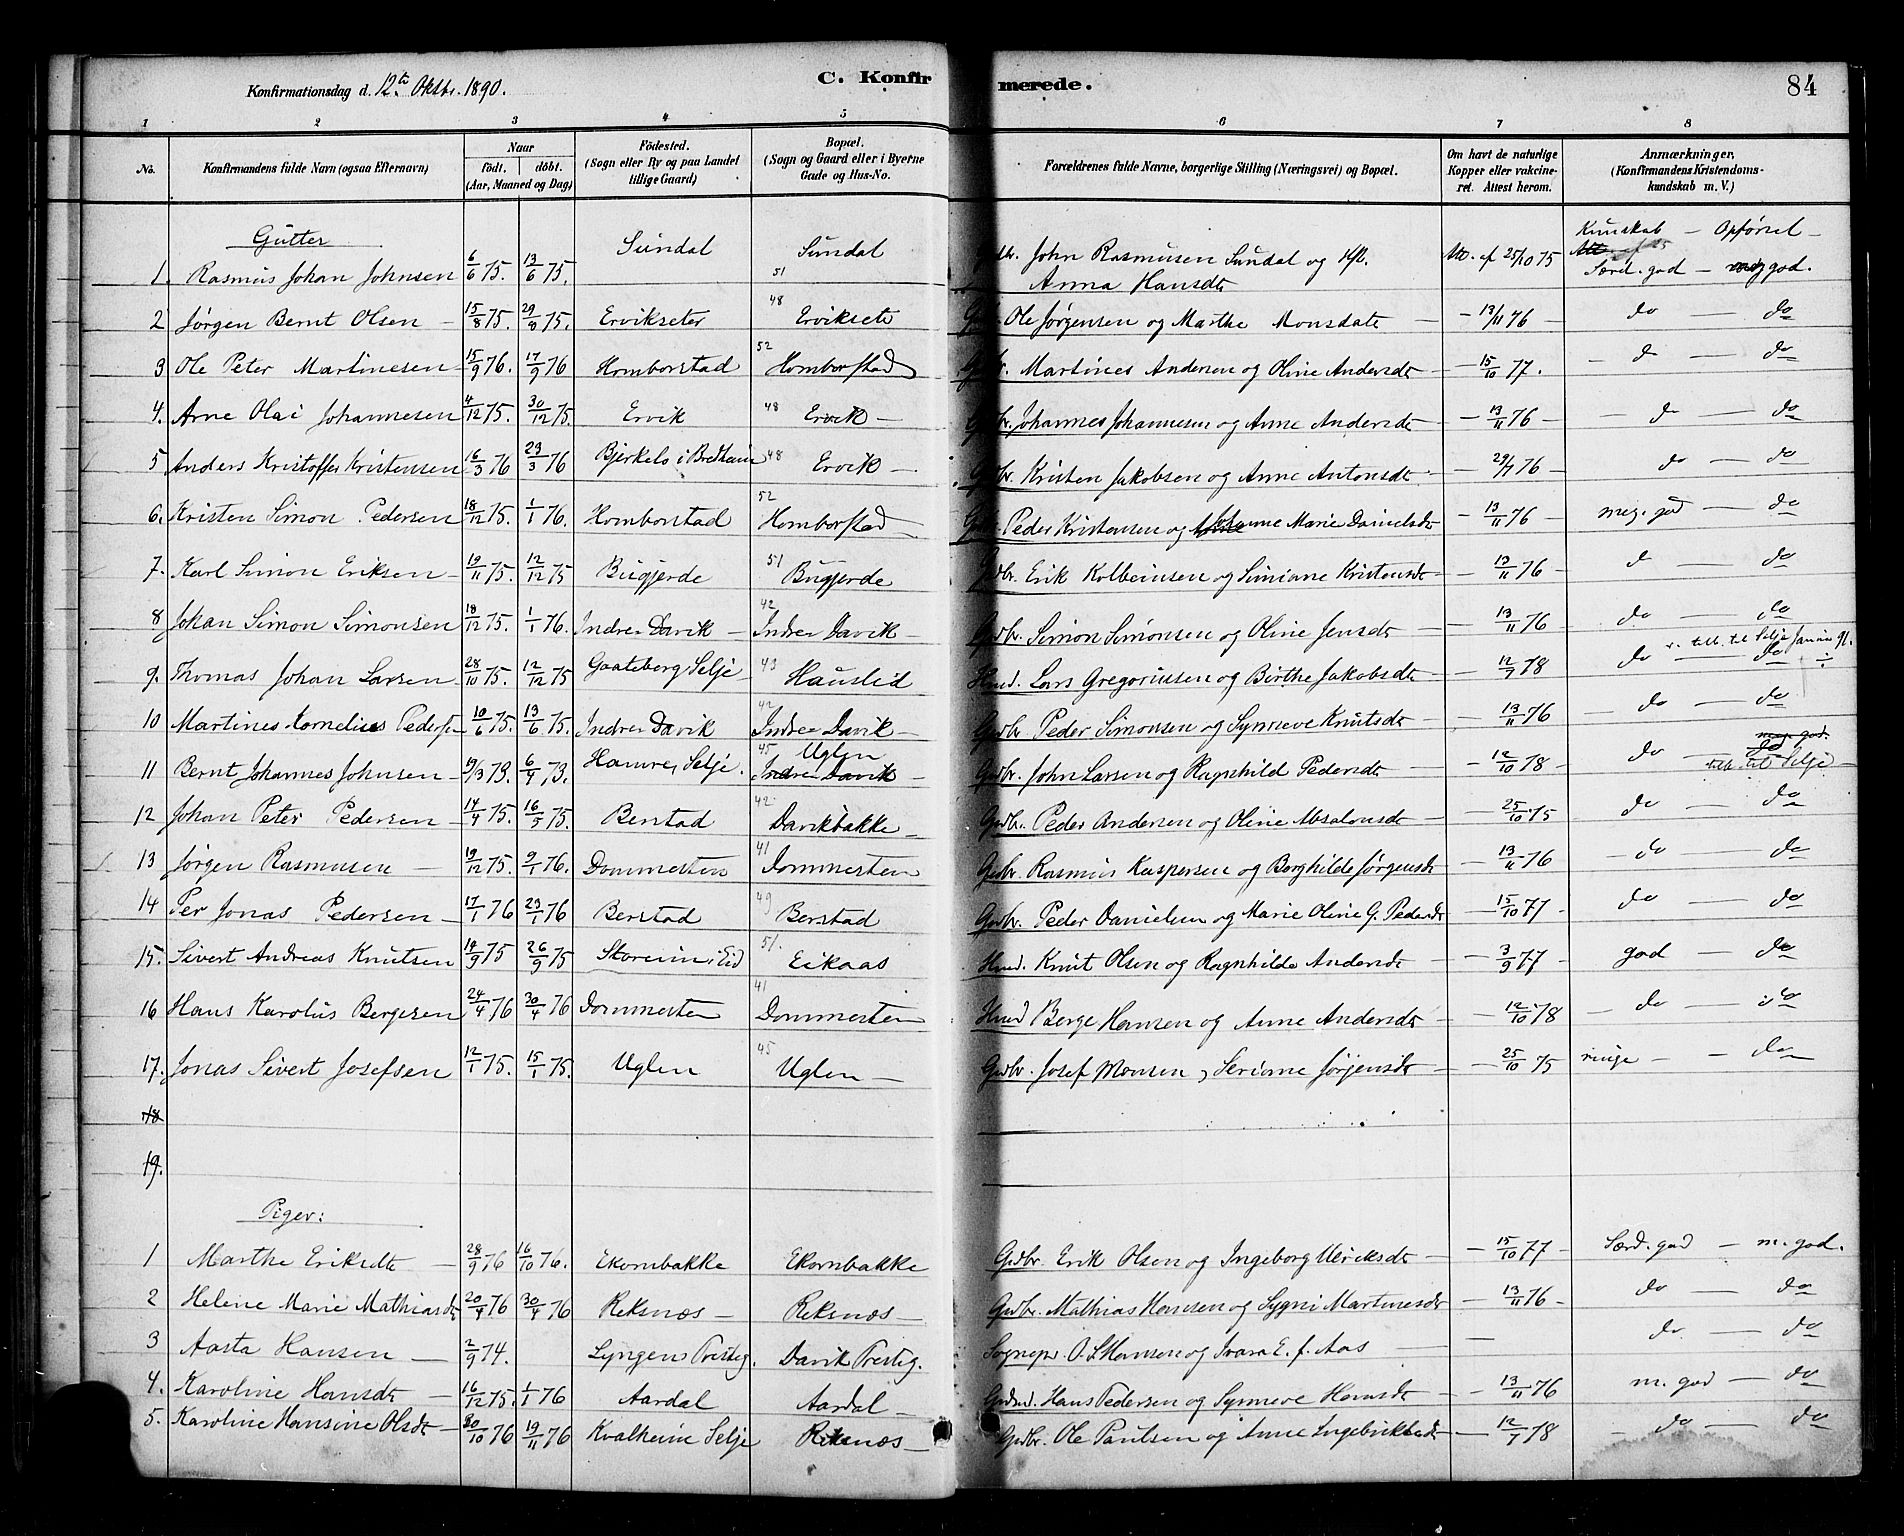 Konfirmationsdag d. 12te Oktbr. 1890.
C. Konfirmerede.
84
1 2 3 4 5 6 7 8
No. Konfirmandens fulde Navn (ogsaa Efternavn) Naar født. døbt. (Aar, Maaned og Dag) Fødested. (Sogn eller By og paa Landet tillige Gaard) Bopæl. (Sogn og Gaard eller i Byerne Gade og Hus-No. Forældrenes fulde Navne, borgerlige Stilling (Næringsvei) og Bopæl. Om havt de naturlige Kopper eller vakcineret. Attest herom. Anmærkninger, (Konfirmandens Kristendomskundskab m. V.)
Gutter
Kunskab — Opførsel —
1. Rasmus Johan Johnsen 6/6 75. 13/6 75. Sundal Sundal 51 John Rasmusen Sundal og Anna Hansdt Att. af 25/10 75 Særd. god — meg god.
2 Jørgen Bernt Olsen — 15/8 75. 29/8 75. Ervikseter 48 Erviksete Ole Jørgensen og Marthe Monsdatt — 13/11 76 — do — do
3 Ole Peter Martinesen 15/9 76. 17/9 76 Hombor­stad 52 Homborstad Gbr. Martines Andersen og Oline Andersdt — 15/10 77. — do — do
4. Arne Olai Johannesen 4/12 75. 30/12 75. Ervik 48 Ervik — Gbr. Johannes Johannesen og Anne Andersdt — 13/11 76 — do — do
5 Anders Kristoffer Kristensen 16/3 76 23/3 76 Bjerkelo i Bredheim 48 Ervik — Gbr. Kristen Jakobsen og Anne Antonsdt — 29/7 76 — do — do
6. Kristen Simon Pedersen 18/12 75. 1/1 76. Homborstad 52 Homborstad Peder Kristensen og Johanne Marie Danielsdt — 13/11 76 — meg. god — do
7. Karl Simon Eriksen — 19/11 75. 12/12 75 Bugjerde 51 Bugjerde Gdbr. Erik Kolbeinsen og Simiane Kristensdt — 13/11 76 — do — do
8 Johan Simon Simonsen 18/12 75. 1/1 76. Indre Davik — 42 Indre Davik — Gdbr. Simon Simonsen og Oline Jensdt — 13/11 76 do — do
9. Thomas Johan Larsen 28/10 75. 12/12 75 Gaateberg, Selje 43 Hauslid Hmd. Lars Gregoriusen og Birthe Jakobsdt — 12/9 78 do — do
10 Martines Kornelius Peders 10/6 75. 13/6 75. Indre Davik 42 Indre Davik — Gdbr. Peder Simonsen og Synneve Knutsdt — 13/11 76 — do — do
11 Bernt Johannes Johnsen — 19/3 73. 6/4 73. Hamre, Selje. 45 Uglen Indre Davik Gdbr. John Larsen og Ragnhild Pedersdt — 12/10 78 — do — do meg. god. till. til Selje —
12 Johan Peter Pedersen — 14/4 75. 16/5 75. Berstad 42 Davikbakke — Gdbr. Peder Andersen og Oline Absalonsdt — 25/10 75 do — do
13 Jørgen Rasmusen — 19/12 75. 9/1 76. Dommesten 41 Dommesten Gdbr. Rasmus Kaspersen og Borghilde Jørgensdt — 13/11 76 — do — do
14 Per Jonas Pedersen — 17/1 76 23/1 76 Berstad 49 Berstad Gdbr. Peder Danielsen og Marie Oline G. Pedersdt — 15/10 77 — do — do
15. Sivert Andreas Knutsen 14/9 75 26/9 75 Storeim i Eid 51. Eikaas Hmd. Knut Olsen og Ragnhilde Andersdt — 3/9 77 — god — do
16 Hans Karolus Bergesen 24/4 76 30/4 76 Dommesten 41 Dommesten Hmd Berge Hansen og Anne Andersdt — 12/10 78 — do — do
17. Jonas Sivert Josefsen 12/1 75. 15/1 75. Uglen 45 Uglen — Gdbr. Josef Monsen, Seriane Jørgensdt — 25/10 75 ringe — do
18
19.
Piger:
1 Marthe Eriksdt — 28/9 76 16/10 76. Ekornbakke Ekornbakke Gdbr. Erik Olsen og Ingeborg Ulriksdt — 15/10 77 — Særd. god — m. god.
2 Helene Marie Mathiasdt 20/4 76 30/4 76 Reksnæs — Reksnæs — Gdbr. Mathias Hansen og Sygni Martinesdt — 13/11 76 — do — do
3 Aasta Hansen — 2/9 74. Lyngen Prestig. Davik Prestig. Sognepr. O. S. Hansen og Ivara E. f. Aas — do — do
4. Karoline Hansdt — 16/12 75. 1/1 76 Aardal Aardal Hans Pedersen og Synneve Hansdt — 13/11 76 m. god — do
5. Karoline Hansine Olsdt — 30/10 76 19/11 76 Kvalheim Selje Reksnæs — Gdbr. Ole Paulsen og Anne Ingebriktsdt — 12/7 78 — do — do